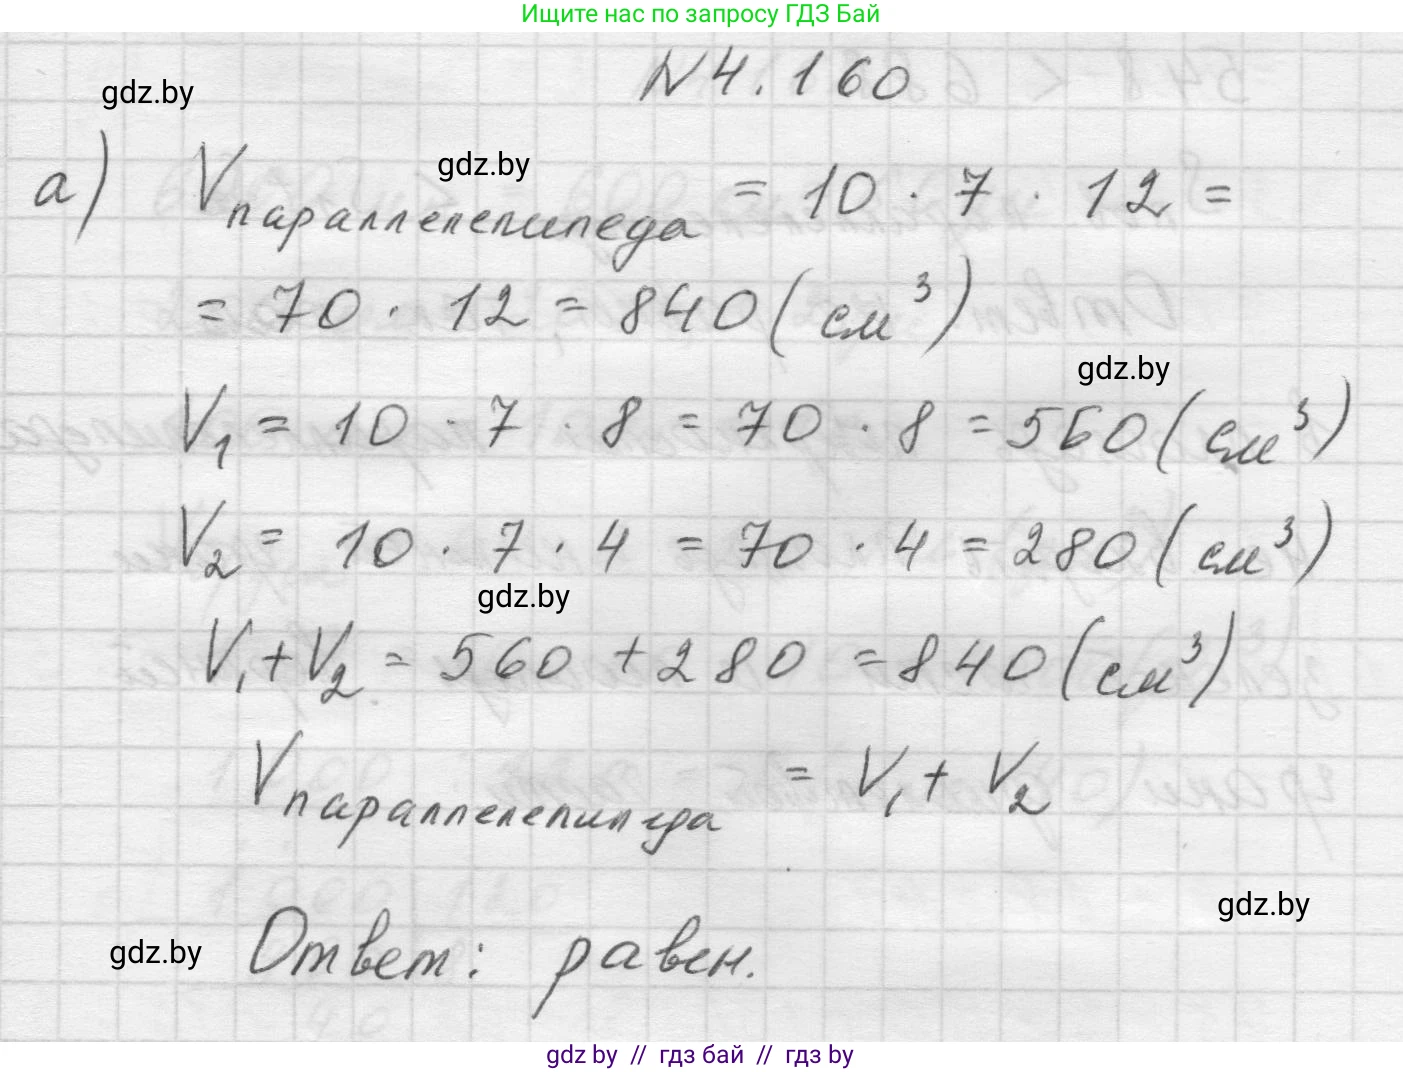 Ищите нас по запросу ГДЗ Бай
N 4.160
gdz.by
gdz.by
а) Vпараллелепипеда = 10 · 7 · 12 =
= 70 · 12 = 840 (см³)
gdz.by
V₁ = 10 · 7 · 8 = 70 · 8 = 560 (см³)
V₂ = 10 · 7 · 4 = 70 · 4 = 280 (см³)
gdz.by
V₁ + V₂ = 560 + 280 = 840 (см³)
Vпараллелепипеда = V₁ + V₂
gdz.by
gdz.by
Ответ: равен.
gdz by // гдз бай // гдз by